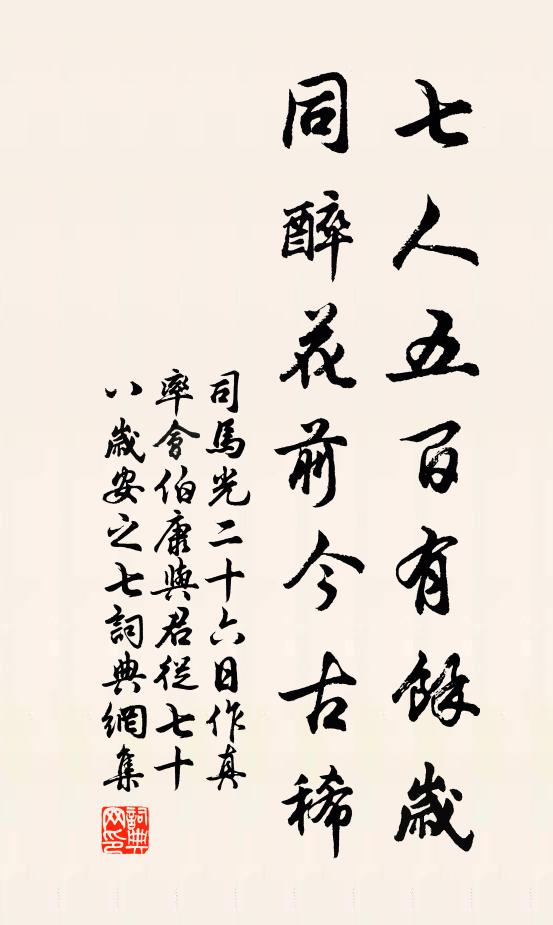 七人五百有餘歲
同醉花前今古稀
司馬光二十六日作真
率會伯康與君從七十
八歲安之七詞典網集
詞典網印